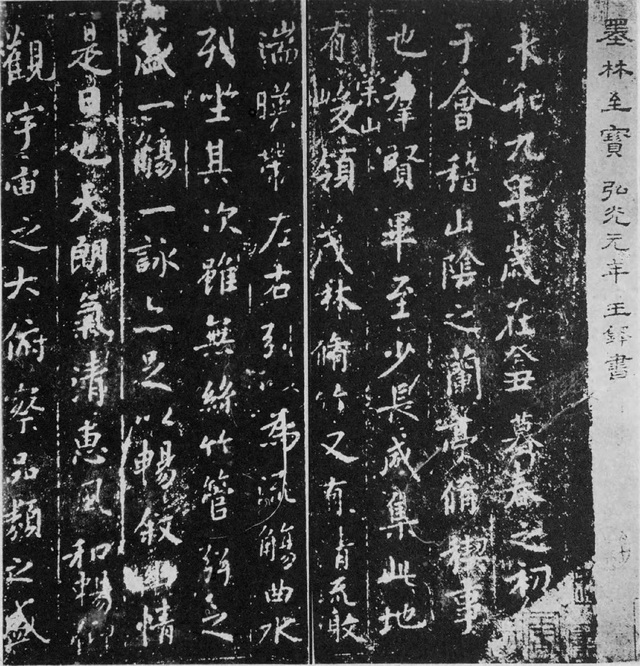 墨林至寶 弘光元年 王鐸書
永和九年歲在癸丑暮春之初
于會稽山陰之蘭亭脩稧事
也羣賢畢至少長咸集此地
有崇山峻領茂林脩竹又有清流激
湍暎帶左右引以為流觴曲水
列坐其次雖無絲竹管弦之
盛一觴一詠亦足以暢敘幽情
是日也天朗氣清惠風和暢仰
觀宇宙之大俯察品類之盛